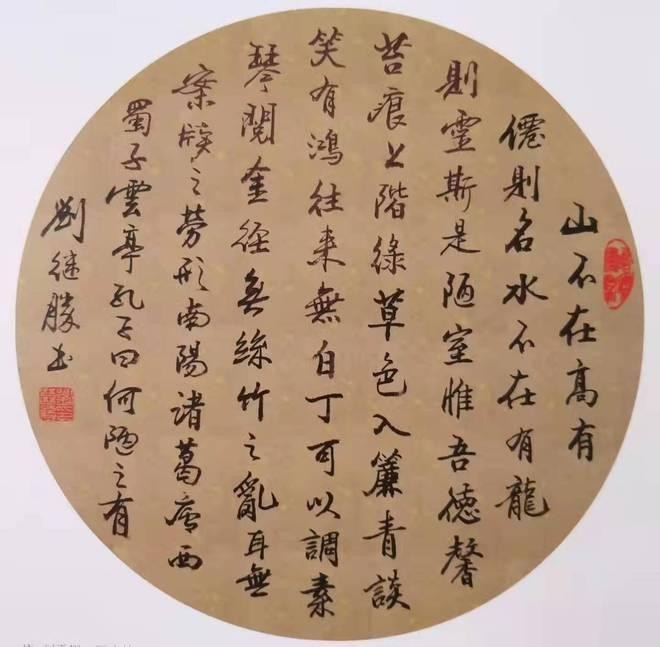 山不在高有
僊則名水不在有龍
則靈斯是陋室惟吾德馨
苔痕上階綠草色入簾青談
笑有鴻往来無白丁可以調素
琴閱金經無絲竹之亂耳無
案牘之勞形南陽諸葛廬西
蜀子雲亭孔子曰何陋之有
劉继勝书